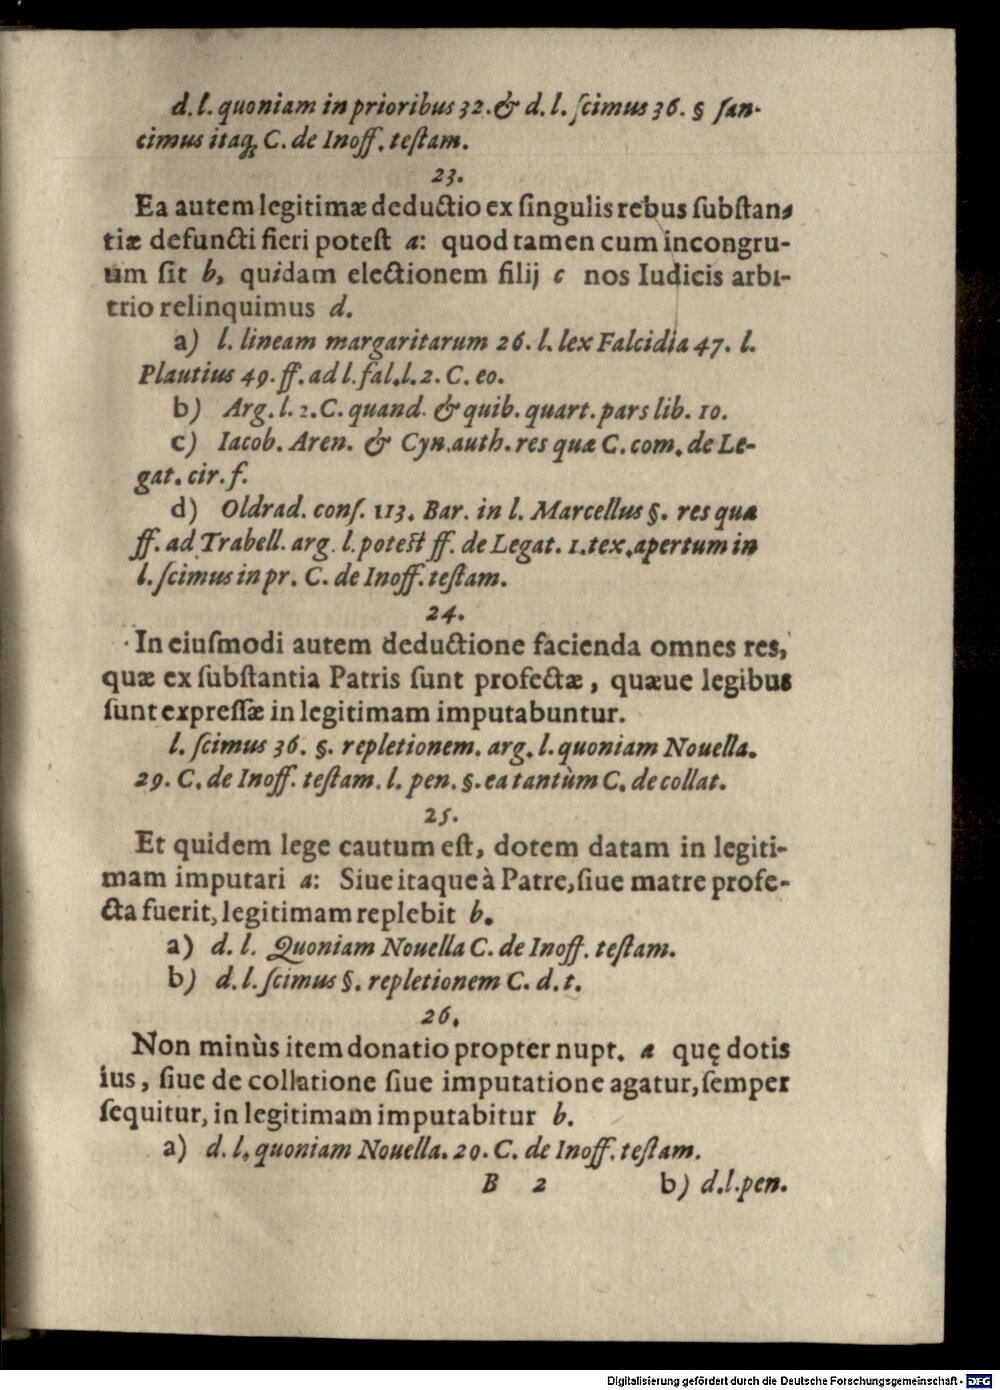 d. l. quoniam in prioribus 32. & d. l. ſcimus 36. § ſan-
cimus itaq; C. de Inoff. teſtam.
23.
Ea autem legitimæ deductio ex ſingulis rebus ſubſtan-
tiæ defuncti fieri poteſt a: quod tamen cum incongru-
um ſit b, quidam electionem filij c nos Iudicis arbi-
trio relinquimus d.
a) l. lineam margaritarum 26. l. lex Falcidia 47. l.
Plautius 49. ff. ad l. fal. l. 2. C. eo.
b) Arg. l. 2. C. quand. & quib. quart. pars lib. 10.
c) Iacob. Aren. & Cyn. auth. res quæ C. com. de Le-
gat. cir. f.
d) Oldrad. conſ. 113. Bar. in l. Marcellus §. res quæ
ff. ad Trabell. arg. l. poteſt ff. de Legat. 1. tex. apertum in
l. ſcimus in pr. C. de Inoff. teſtam.
24.
In eiuſmodi autem deductione facienda omnes res,
quæ ex ſubſtantia Patris ſunt profectæ, quæue legibus
ſunt expreſſæ in legitimam imputabuntur.
l. ſcimus 36. §. repletionem. arg. l. quoniam Nouella.
29. C. de Inoff. teſtam. l. pen. §. ea tantùm C. de collat.
25.
Et quidem lege cautum eſt, dotem datam in legiti-
mam imputari a: Siue itaque à Patre, ſiue matre profe-
cta fuerit, legitimam replebit b.
a) d. l. Quoniam Nouella C. de Inoff. teſtam.
b) d. l. ſcimus §. repletionem C. d. t.
26.
Non minùs item donatio propter nupt. a quę dotis
ius, ſiue de collatione ſiue imputatione agatur, ſemper
ſequitur, in legitimam imputabitur b.
a) d. l. quoniam Nouella. 20. C. de Inoff. teſtam.
B 2 b) d. l. pen.
Digitalisierung gefördert durch die Deutsche Forschungsgemeinschaft - DFG